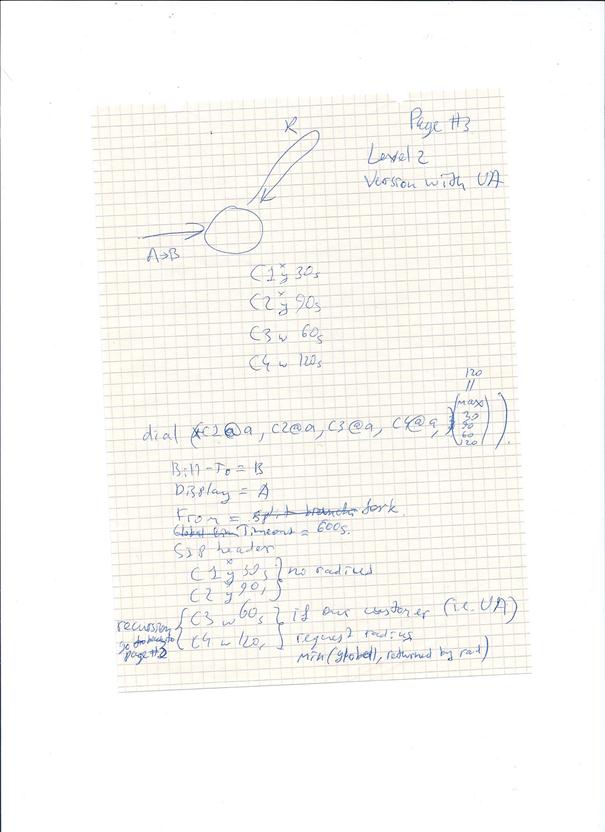 Page #3
Level 2
Version with UA
R
A→B
C1 x y 30s
C2 x y 90s
C3 w 60s
C4 w 120s
120
||
dial (C2@a, C2@a, C3@a, C4@a, (max 30 90 60 120)).
Bill-To = B
Display = A
From = split branch fork.
Timeout = 600s.
SIP header
C1 x y 30s } no radius
C2 y 90s
recursion { C3 w 60s } if our customer (i.e. UA)
go to page #2 { C4 w 120s } request radius
min(global, returned by rad)